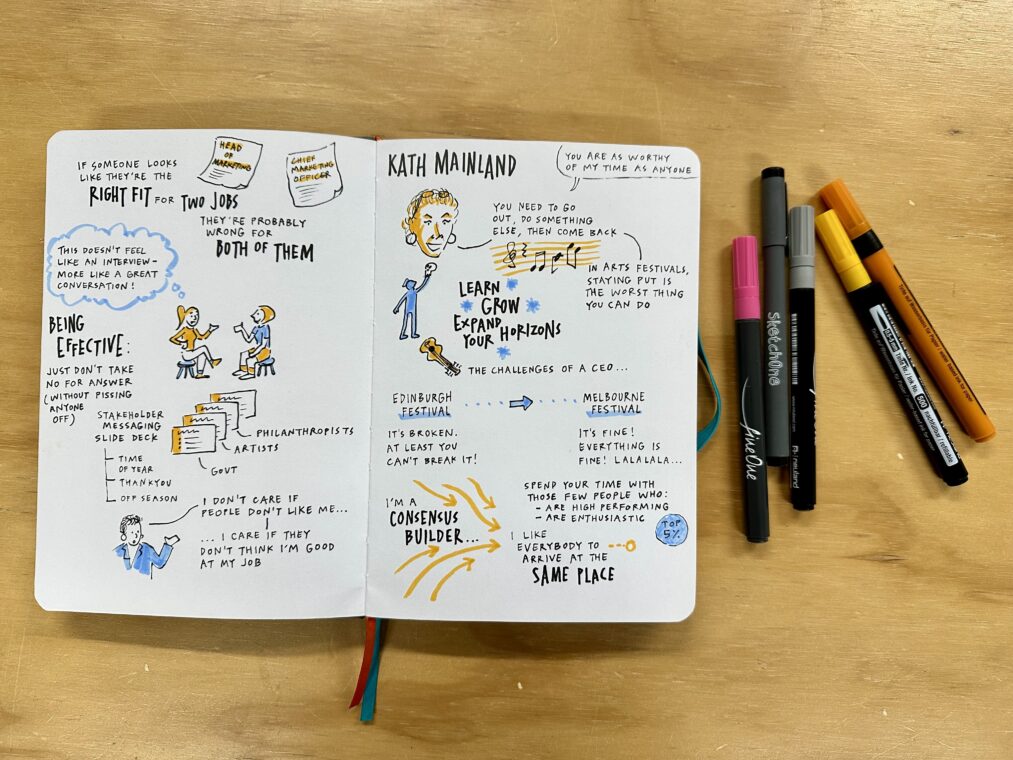 IF SOMEONE LOOKS
LIKE THEY'RE THE
RIGHT FIT FOR TWO JOBS
HEAD
OF
MARKETING
CHIEF
MARKETING
OFFICER
THEY'RE PROBABLY
WRONG FOR
BOTH OF THEM
THIS DOESN'T FEEL
LIKE AN INTERVIEW –
MORE LIKE A GREAT
CONVERSATION!
BEING
EFFECTIVE:
JUST DON'T TAKE
NO FOR ANSWER
(WITHOUT PISSING
ANYONE
OFF)
STAKEHOLDER
MESSAGING
SLIDE DECK
PHILANTHROPISTS
ARTISTS
GOVT
TIME
OF YEAR
THANKYOU
OFF SEASON
I DON'T CARE IF
PEOPLE DON'T LIKE ME...
... I CARE IF THEY
DON'T THINK I'M GOOD
AT MY JOB
KATH MAINLAND
YOU ARE AS WORTHY
OF MY TIME AS ANYONE
YOU NEED TO GO
OUT, DO SOMETHING
ELSE, THEN COME BACK
IN ARTS FESTIVALS,
STAYING PUT IS
THE WORST THING
YOU CAN DO
LEARN
GROW
EXPAND
YOUR HORIZONS
THE CHALLENGES OF A CEO...
EDINBURGH
FESTIVAL
MELBOURNE
FESTIVAL
IT'S BROKEN.
AT LEAST YOU
CAN'T BREAK IT!
IT'S FINE!
EVERYTHING IS
FINE! LALALALA...
I'M A
CONSENSUS
BUILDER...
SPEND YOUR TIME WITH
THOSE FEW PEOPLE WHO:
- ARE HIGH PERFORMING
- ARE ENTHUSTIC
TOP
5%
I LIKE
EVERYBODY TO
ARRIVE AT THE
SAME PLACE
fineOne
SketchOne
neuland